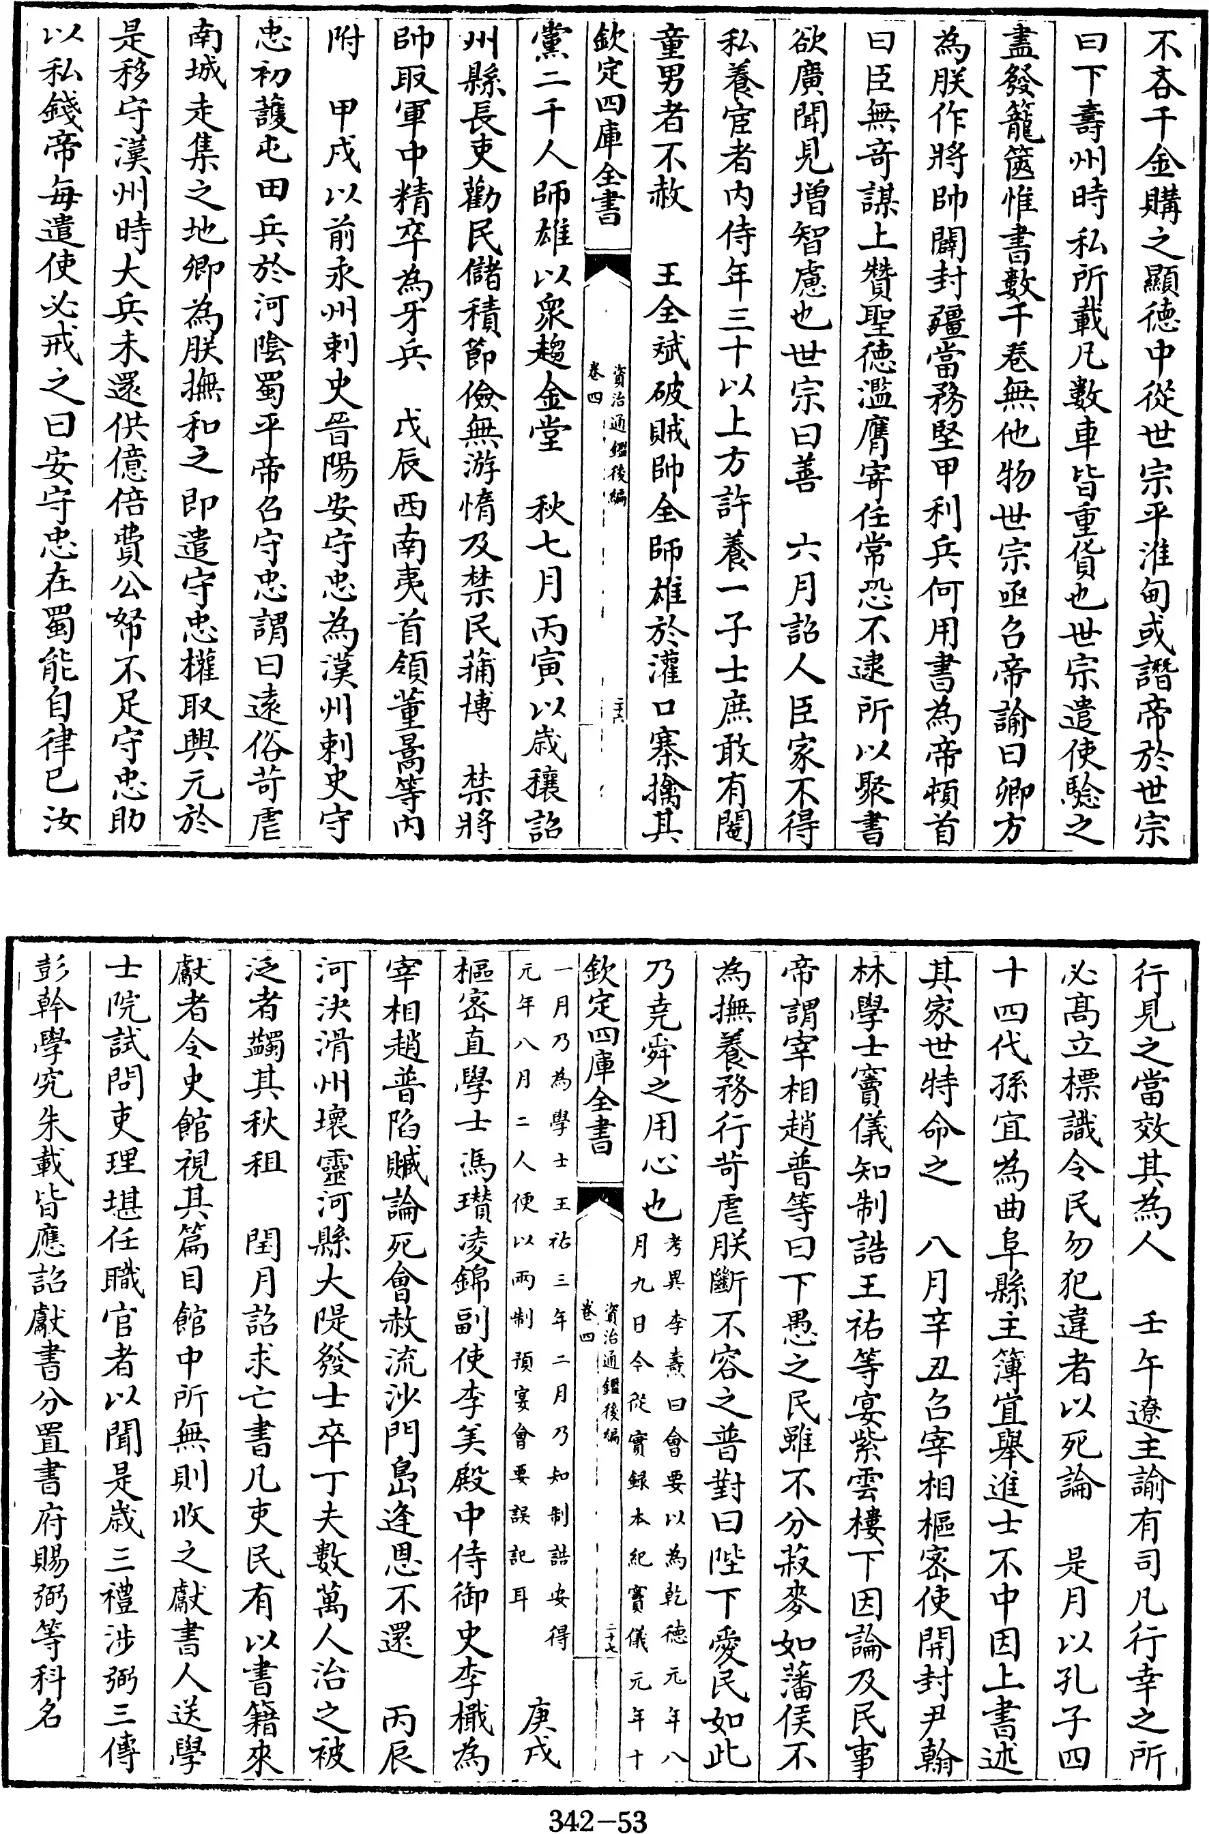 不吝千金購之顯徳中從世宗平淮甸或譖帝於世宗
曰下夀州時私所載凡數車皆重貨也世宗遣使驗之
盡發籠篋惟書數千卷無他物世宗亟召帝諭曰卿方
為朕作將帥闢封疆當務堅甲利兵何用書為帝頓首
曰臣無奇謀上贊聖徳濫膺寄任常恐不逮所以聚書
欲廣聞見增智慮也世宗曰善　六月詔人臣家不得
私養宦者内侍年三十以上方許養一子士庶敢有閹
童男者不赦　王全斌破賊帥全師雄於灌口寨擒其
欽定四庫全書
資治通鑑後編
卷四
二十六
黨二千人師雄以衆趨金堂　秋七月丙寅以歳穰詔
州縣長吏勸民儲積節儉無游惰及禁民蒱博　禁將
帥取軍中精卒為牙兵　戊辰西南夷首領董暠等内
附　甲戌以前永州刺史晉陽安守忠為漢州刺史守
忠初護屯田兵於河陰蜀平帝召守忠謂曰逺俗苛虐
南城走集之地卿為朕撫和之即遣守忠權取興元於
是移守漢州時大兵未還供億倍費公帑不足守忠助
以私錢帝每遣使必戒之曰安守忠在蜀能自律已汝
行見之當效其為人　壬午遼主諭有司凡行幸之所
必髙立標識令民勿犯違者以死論　是月以孔子四
十四代孫宜為曲阜縣主簿宜舉進士不中因上書述
其家世特命之　八月辛丑召宰相樞宻使開封尹翰
林學士竇儀知制誥王祐等宴紫雲樓下因論及民事
帝謂宰相趙普等曰下愚之民雖不分菽麥如藩侯不
為撫養務行苛虐朕斷不容之普對曰陛下愛民如此
乃堯舜之用心也
考異李燾曰會要以為乾徳元年八
月九日今從實録本紀竇儀元年十
欽定四庫全書
資治通鑑後編
卷四
二十七
一月乃為學士王祐三年二月乃知制誥安得
元年八月二人便以兩制預宴會要誤記耳
庚戌
樞宻直學士馮瓚凌錦副使李美殿中侍御史李檝為
宰相趙普陷贓論死會赦流沙門島逢恩不還　丙辰
河決滑州壞靈河縣大隄發士卒丁夫數萬人治之被
泛者蠲其秋租　閏月詔求亡書凡吏民有以書籍來
獻者令史館視其篇目館中所無則收之獻書人送學
士院試問吏理堪任職官者以聞是歳三禮涉弼三傳
彭幹學究朱載皆應詔獻書分置書府賜弼等科名
342-53